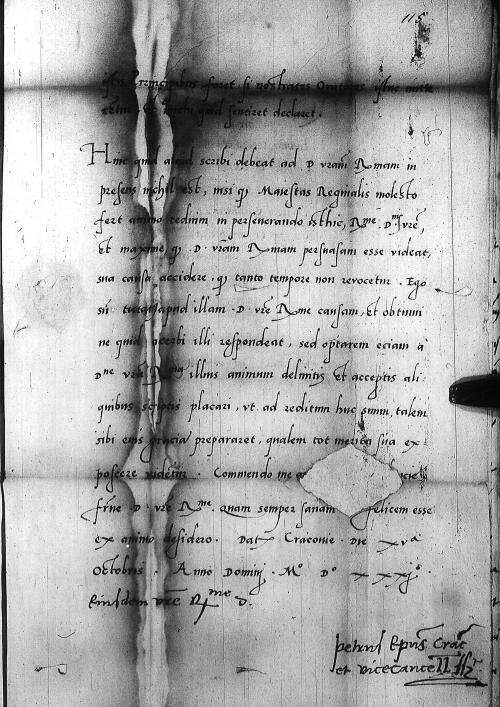 115
principibus foret si nostrates Oratores istuc mitte
et mihi quid sentiret declaret.
Hinc quid scribi debeat ad D vram Rmam in
presens nihil est, nisi q Maiestas Reginalis molesto
fert animo tedium in perseverando isthic, Rme D. vre,
et maxime, q D. vram Rmam persuasam esse videat,
sua causa accidere, q tanto tempore non revocetur. Ego
apud illam D. vre Rme causam, et obtinui
ne quid acerbi illi respondeat, sed optarem eciam a
Dne vra Rma illius animum delinitis et acceptis ali
quibus scriptis placari, vt ad reditum huc suum, talem
sibi eius gracia prepararet, qualem tot merita sua ex
poscere videntur. Commendo me
frne D. vre Rme. Quam semper sanam felicem esse
ex animo desidero. Dat Cracovie. Die xv a
Octobris. Anno Domini. Mo Do xxxjo.
Eiusdem vre Rme D.
petrus Epus Crac
et vicecancell